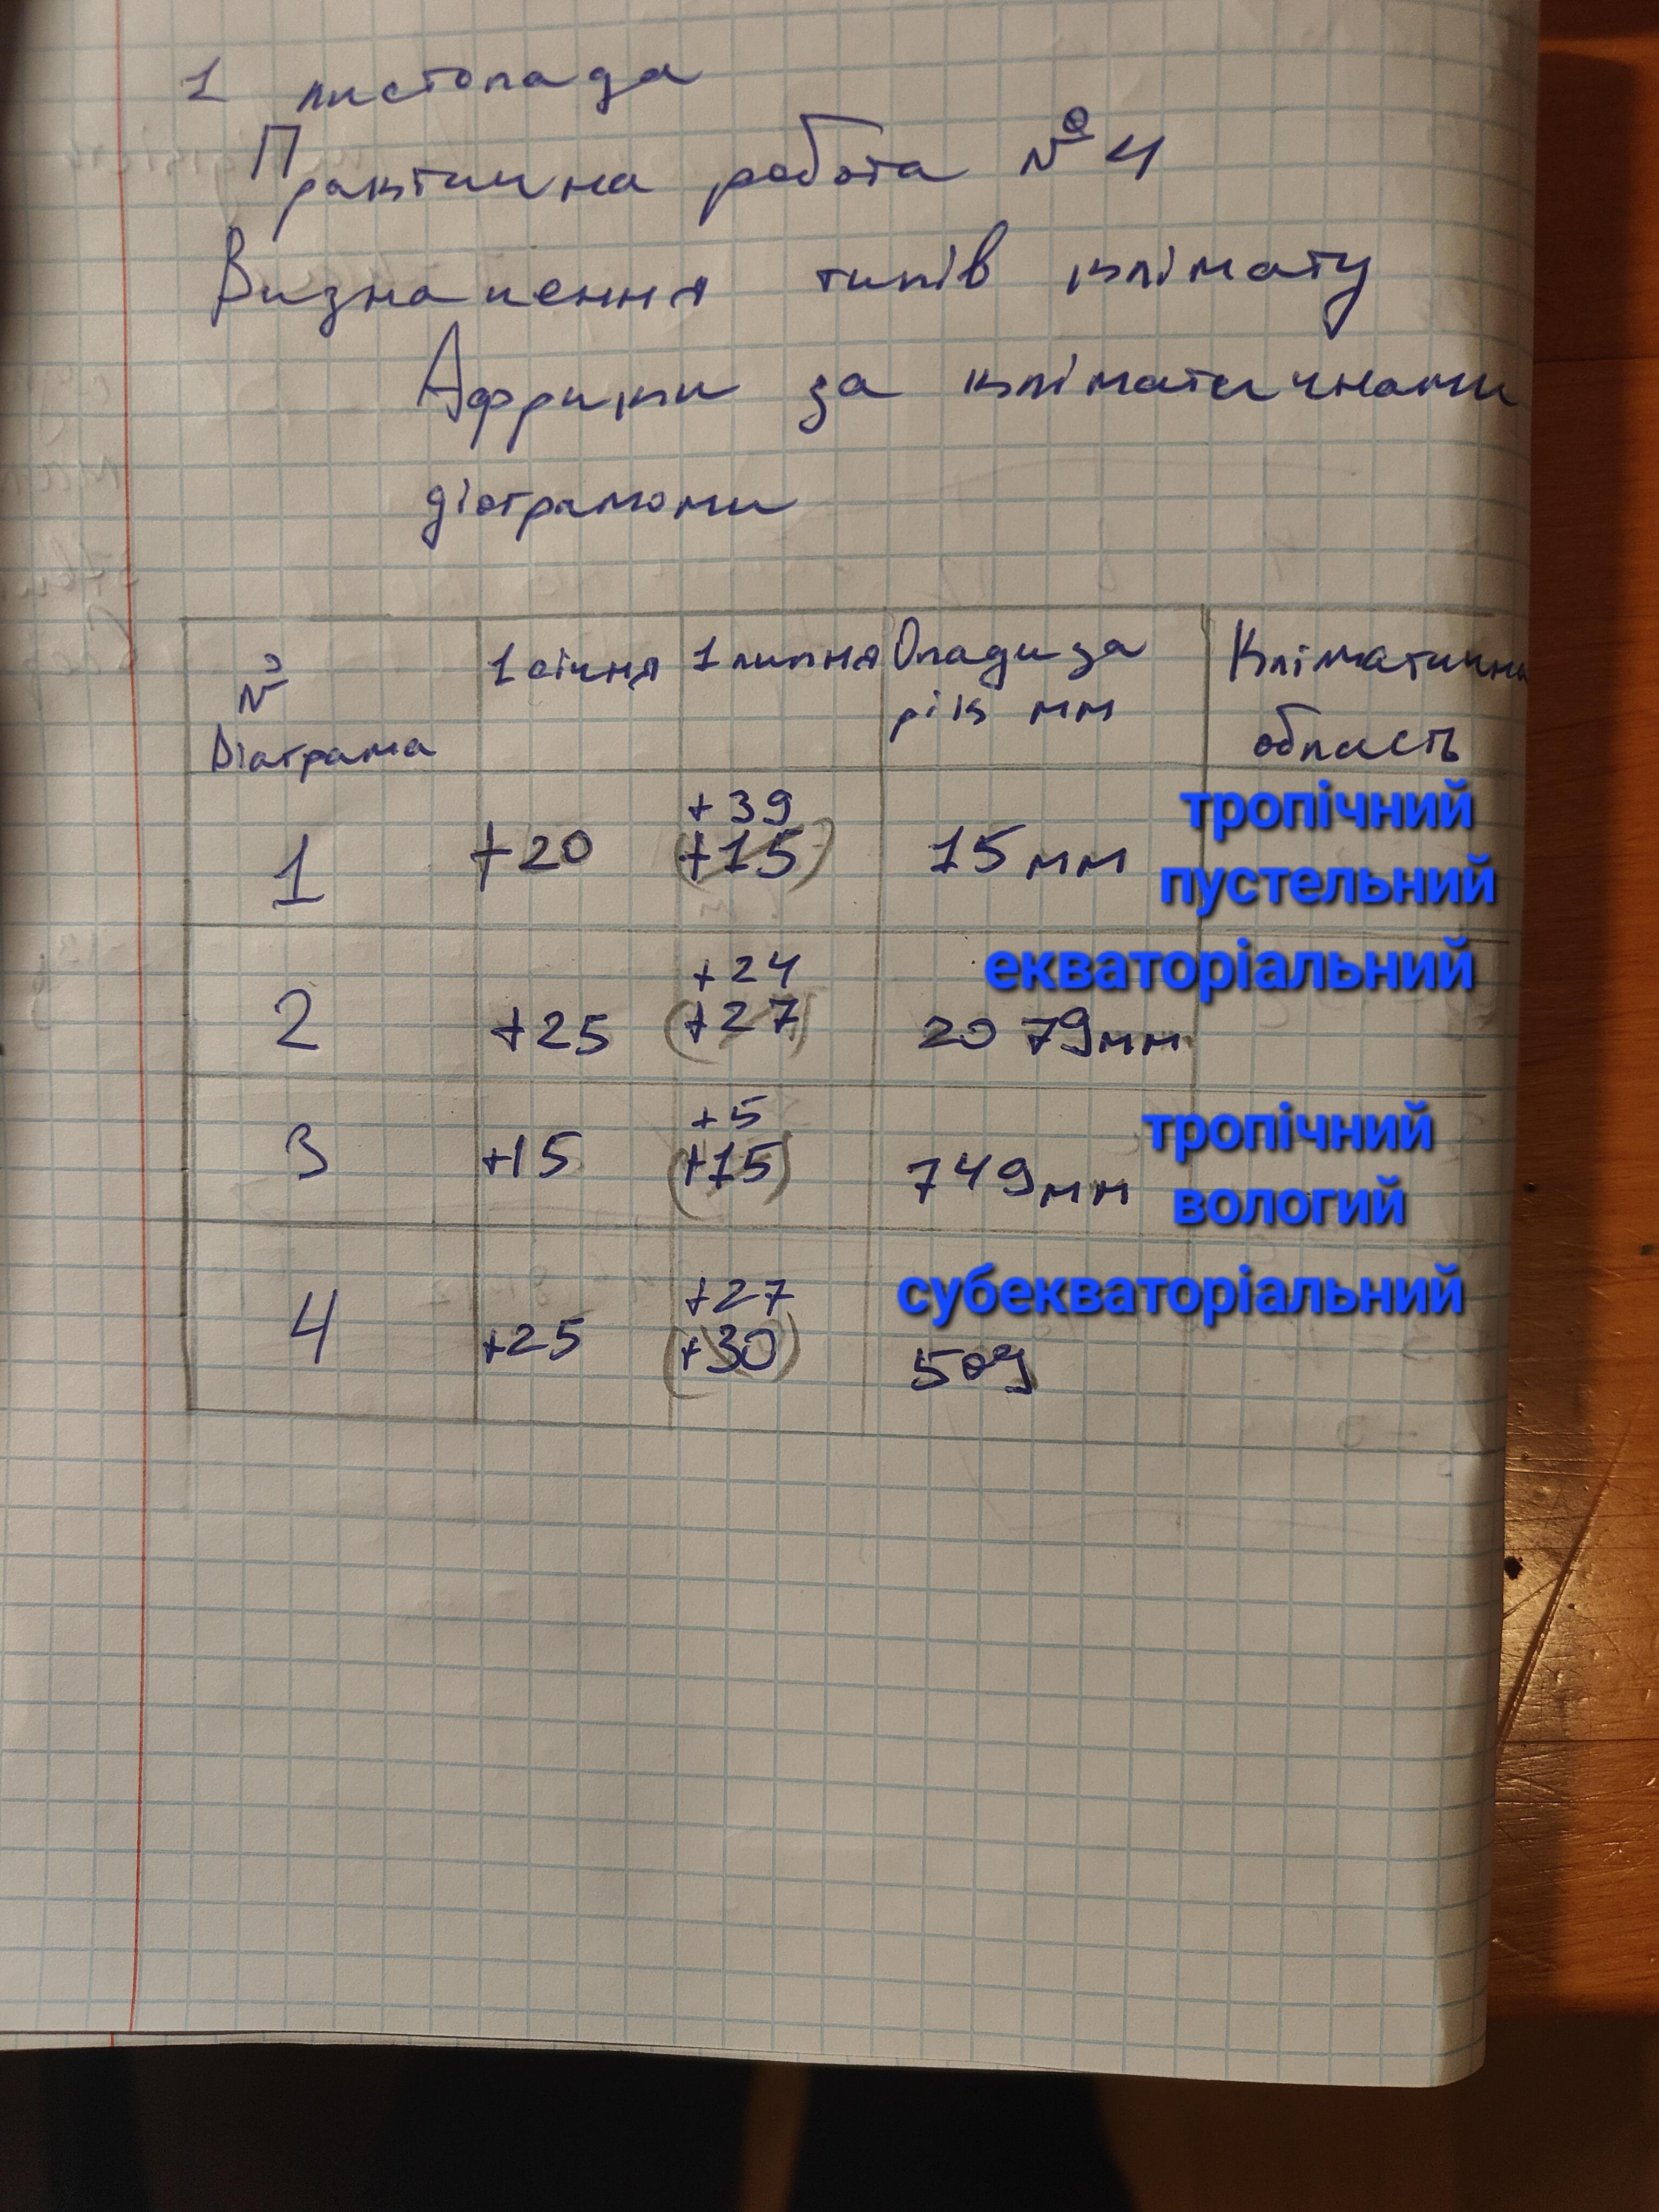 1 листопада
Практична робота № 4
Визначення типів клімату
Африки за кліматичнами
діаграмоми
№ Діаграма
1 січня
1 липня
Опади за рік мм
Кліматична область
1
+20
+39
(+15)
15мм
тропічний
пустельний
2
+25
+24
(+27)
2079мм
екваторіальний
3
+15
+5
(+15)
749мм
тропічний
вологий
4
+25
+27
(+30)
509
субекваторіальний